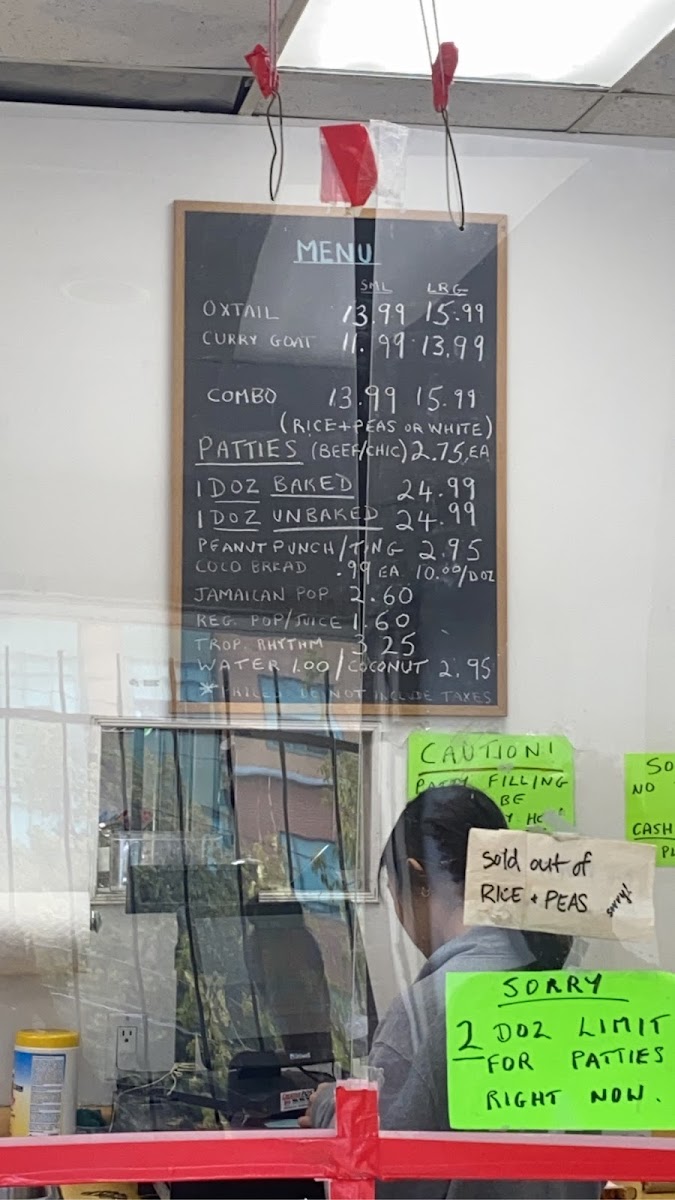 MENU
SML LRG
OXTAIL 13.99 15.99
CURRY GOAT 11.99 13.99
COMBO 13.99 15.99
(RICE+PEAS OR WHITE)
PATTIES (BEEF/CHIC) 2.75 EA
1 DOZ BAKED 24.99
1 DOZ UNBAKED 24.99
PEANUT PUNCH/TING 2.95
COCO BREAD .99 EA. 10.00/DOZ
JAMAICAN POP 2.60
REG. POP/JUICE 1.60
TROP. RHYTHM 3.25
WATER 1.00/COCONUT 2.95
DO NOT INCLUDE TAXES
CAUTION!
PATTY FILLING
BE
SO
NO
CASH
PL
sold out of
RICE + PEAS sorry!
SORRY
2 DOZ LIMIT
FOR PATTIES
RIGHT NOW.